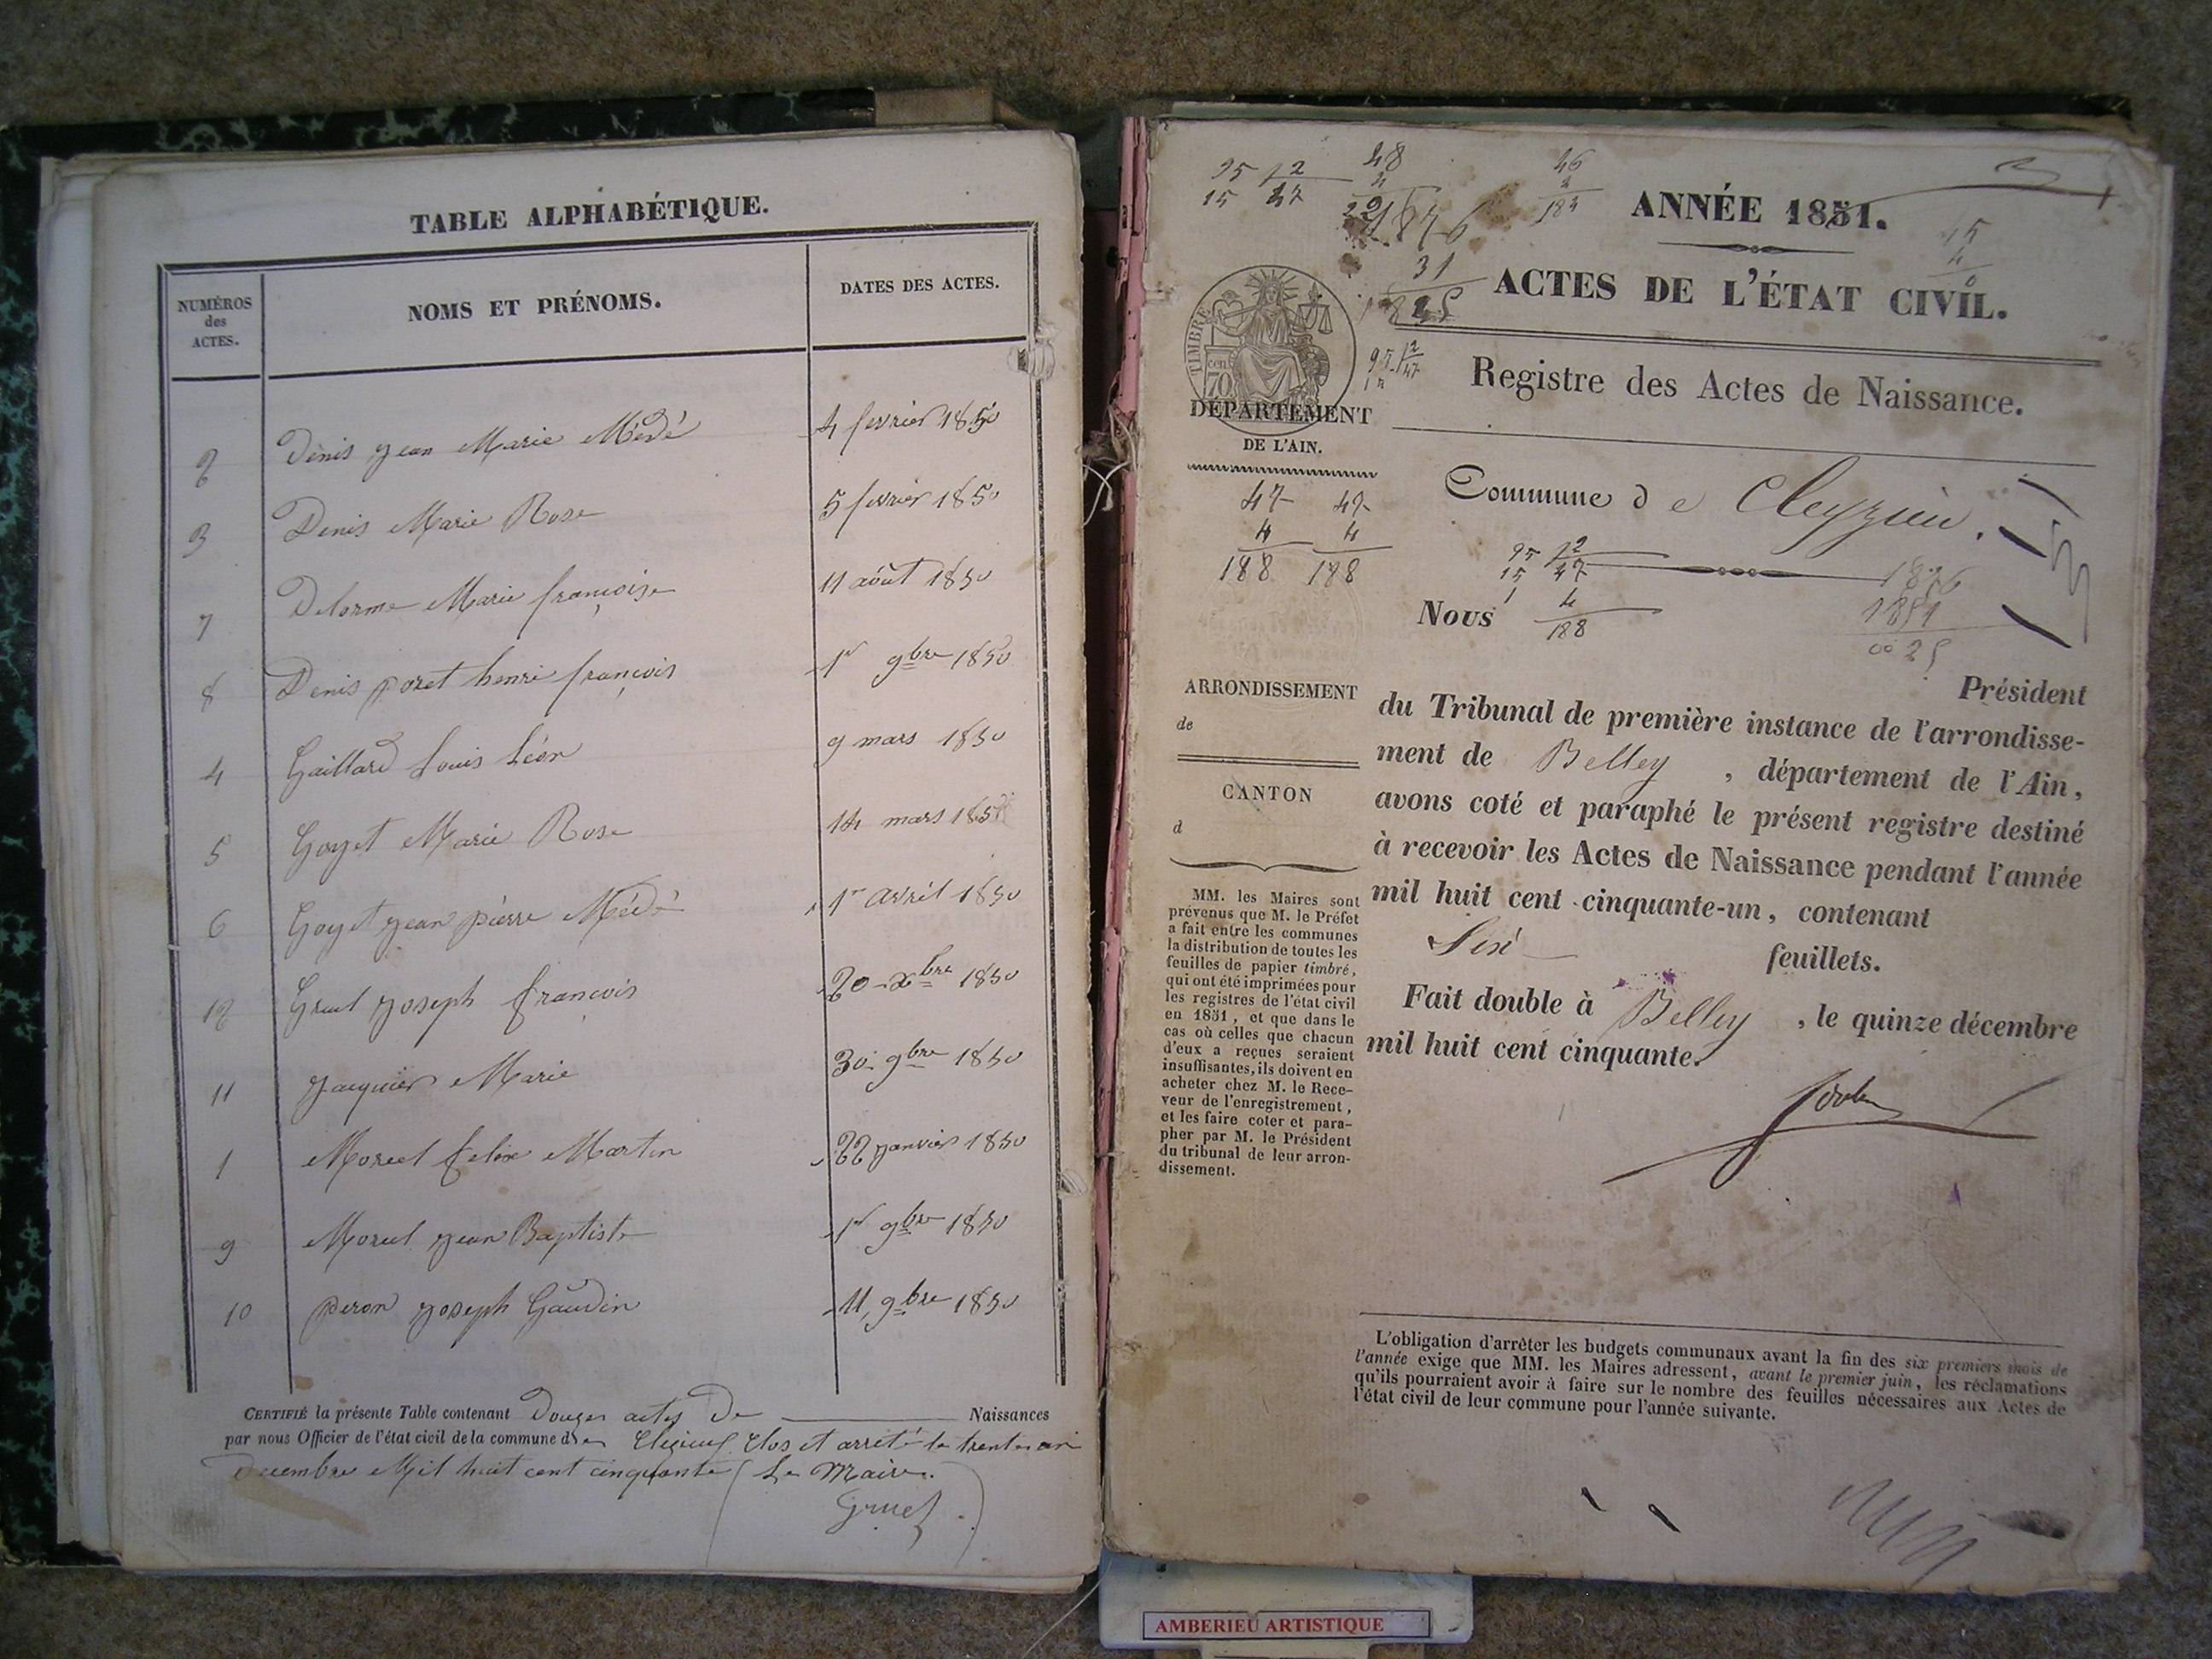 TABLE ALPHABÉTIQUE.
NUMÉROS
des
ACTES.
NOMS ET PRÉNOMS.
DATES DES ACTES.
2 Denis jean Marie Médé 4 fevrier 1850
3 Denis Marie Rose 5 fevrier 1850
7 Delorme Marie françoise 11 août 1850
8 Denis poret henri françois 1er 9bre 1850
4 Gaillard Louis Léon 9 mars 1850
5 Goyet Marie Rose 14 mars 1850
6 Goyet jean pierre Médé 1er avril 1850
12 Gruel joseph françois 20 xbre 1850
11 jacquier Marie 30 9bre 1850
1 Morel felix Martin 22 janvier 1850
9 Morel jean Baptiste 1er 9bre 1850
10 peron joseph Gaudin 11, 9bre 1850
CERTIFIÉ la présente Table contenant Douze actes De Naissances
par nous Officier de l'état civil de la commune de Clos et arrêté le trente un
Decembre Mil huit cent cinquante Le Maire.
Gruel
95 2
15 47
48
4
1876
46
4
184
31
1845
45
4
ANNÉE 1851.
ACTES DE L'ÉTAT CIVIL.
TIMBRE
cen
70
95 2
47
Registre des Actes de Naissance.
DÉPARTEMENT
DE L'AIN.
47 47
4 4
188 188
Commune de Cleyzieu.
95 2
15 47
1 4
188
1876
1851
00 25
Nous
Président
du Tribunal de première instance de l'arrondisse-
ment de Belley, département de l'Ain,
avons coté et paraphé le présent registre destiné
à recevoir les Actes de Naissance pendant l'année
mil huit cent cinquante-un, contenant
Six feuillets.
Fait double à Belley, le quinze décembre
mil huit cent cinquante.
ARRONDISSEMENT
de
CANTON
d
MM. les Maires sont
prévenus que M. le Préfet
a fait entre les communes
la distribution de toutes les
feuilles de papier timbré,
qui ont été imprimées pour
les registres de l'état civil
en 1851, et que dans le
cas où celles que chacun
d'eux a reçues seraient
insuffisantes, ils doivent en
acheter chez M. le Rece-
veur de l'enregistrement,
et les faire coter et para-
pher par M. le Président
du tribunal de leur arron-
dissement.
L'obligation d'arrêter les budgets communaux avant la fin des six premiers mois de
l'année exige que MM. les Maires adressent, avant le premier juin, les réclamations
qu'ils pourraient avoir à faire sur le nombre des feuilles nécessaires aux Actes de
l'état civil de leur commune pour l'année suivante.
AMBERIEU ARTISTIQUE